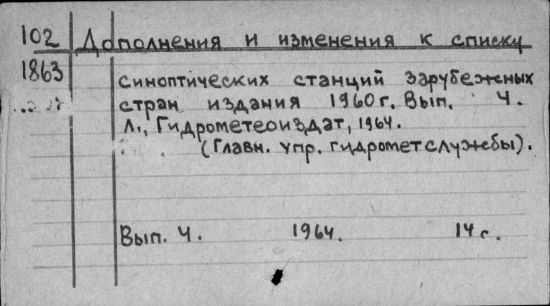 102 Дополнения и изменения к списку
1863 синоптических станций зарубежных
стран издания 1960г. Вып. 4.
Л., Гидрометеоиздат, 1964.
(Главн. упр. гидрометслужбы).
Вып. 4. 1964. 14 с.